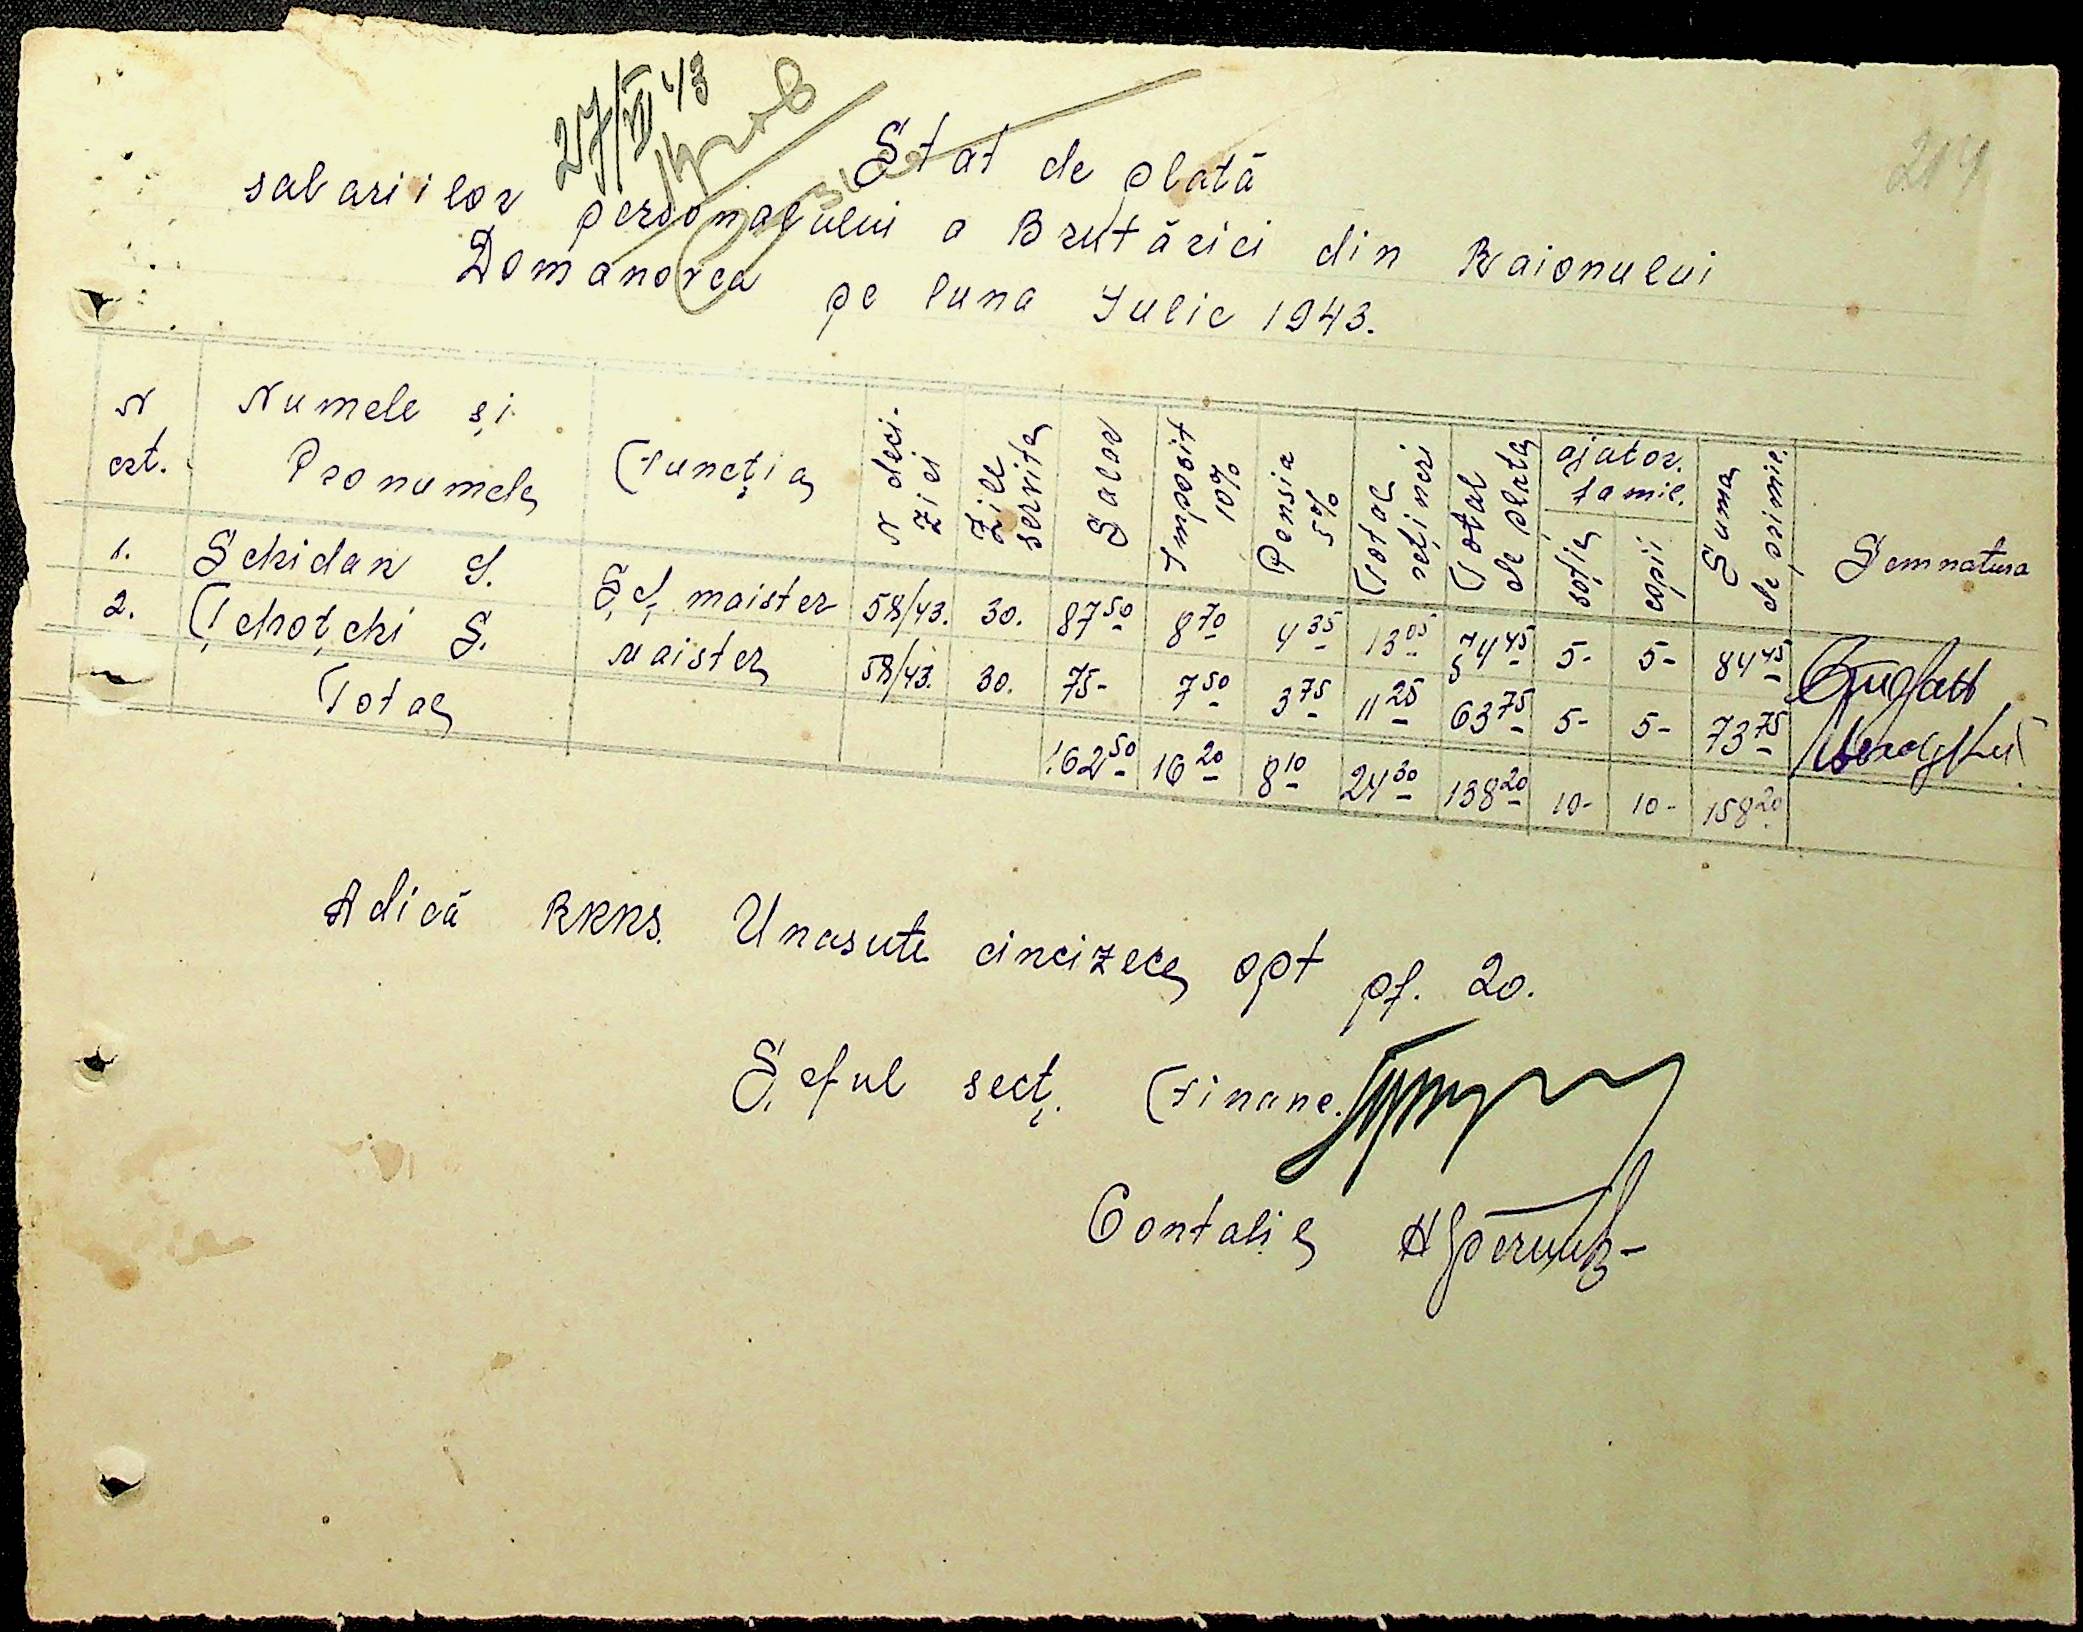 27/VII 43
214
Stat de plată
salariilor personalului a Brutăriei din Raionului
Domanovca pe luna Iulie 1943.
N crt. Numele și Pronumele Funcția N deciziei Zile servite Salar Impozit 10% Pensia 5% Total rețineri Total de plata ajutor. famil. soția copii Suma de primit. Semnatura
1. Schidan S. Șef maister 58/43. 30. 87 50 8 70 4 35 13 05 74 45 5- 5- 84 45
2. Țchoțchi S. Maister 58/43. 30. 75- 7 50 3 75 11 25 63 75 5- 5- 73 75
Total 162 50 16 20 8 10 24 30 138 20 10- 10- 158 20
Adică RKKS. Unasute cincizeci opt pf. 20.
Șeful secț. Financ.
Contabil